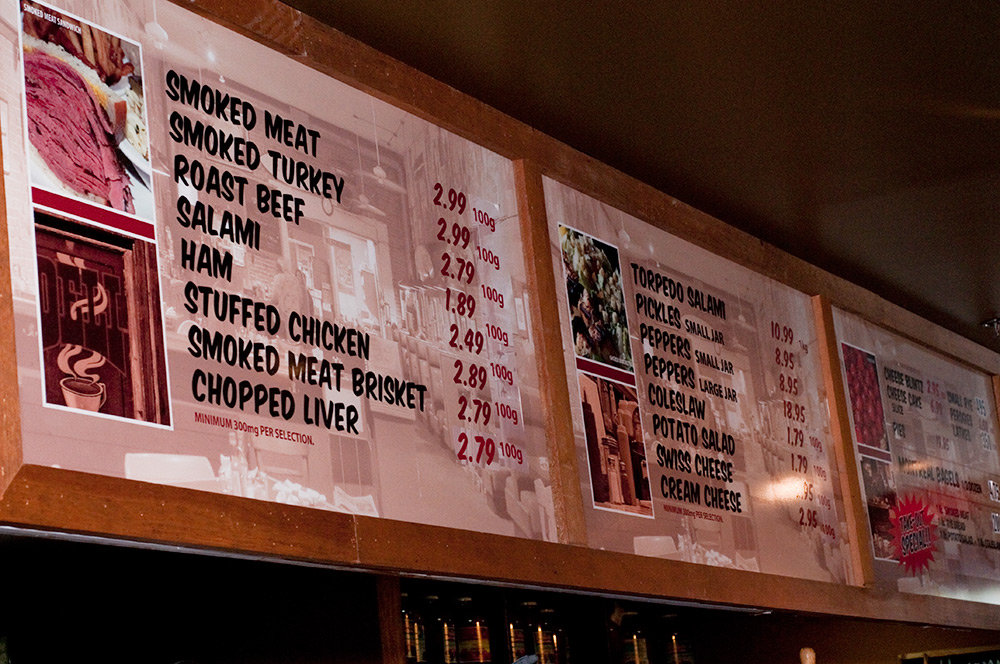 SMOKED MEAT SANDWICH
SMOKED MEAT 2.99 100g
SMOKED TURKEY 2.99 100g
ROAST BEEF 2.79 100g
SALAMI 1.89 100g
HAM 2.49 100g
STUFFED CHICKEN 2.89 100g
SMOKED MEAT BRISKET 2.79 100g
CHOPPED LIVER 2.79 100g
MINIMUM 300mg PER SELECTION.
TORPEDO SALAMI 10.99
PICKLES SMALL JAR 8.95
PEPPERS SMALL JAR 8.95
PEPPERS LARGE JAR 18.95
COLESLAW 1.79 100g
POTATO SALAD 1.79 100g
SWISS CHEESE .95 100g
CREAM CHEESE 2.95 100g
MINIMUM 300mg PER SELECTION.
CHEESE BLINTZ 2.95
CHEESE CAKE
SLICE
SMALL RYE
MONTREAL BAGELS
TAKE-OUT SPECIAL!